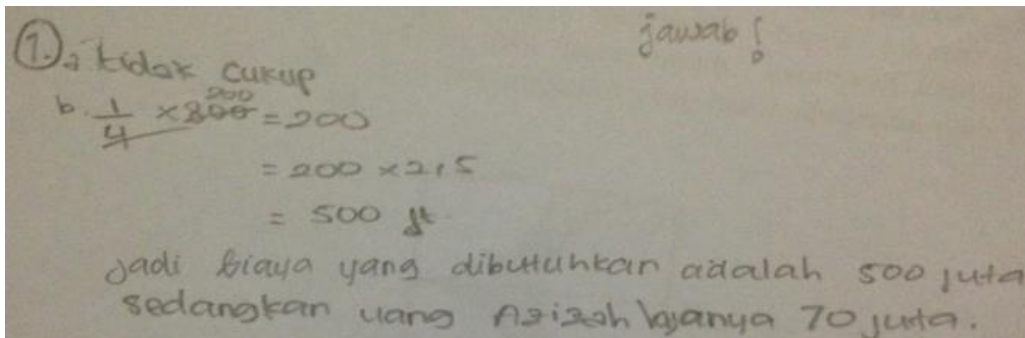 jawab!
1. a tidak cukup
b. 1/4 × 800 200 = 200
= 200 × 2,5
= 500 jt.
Jadi biaya yang dibutuhkan adalah 500 juta
sedangkan uang Azizah hanya 70 juta.